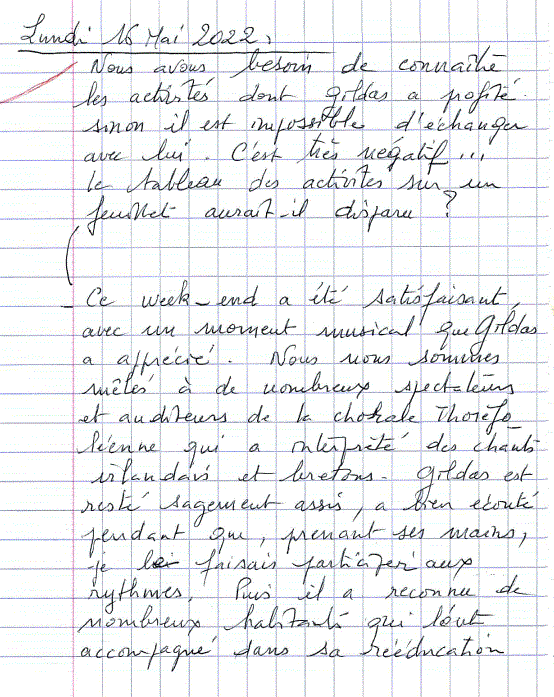 Lundi 16 Mai 2022.
Nous avons besoin de connaître
les activités dont Gildas a profité.
sinon il est impossible d'échanger
avec lui. C'est très négatif...
Le tableau des activités sur un
feuillet aurait-il disparu ?
Ce week-end a été satisfaisant,
avec un moment musical que Gildas
a apprécié. Nous nous sommes
mêlés à de nombreux spectateurs
et auditeurs de la chorale Thoréfo
léenne qui a interprété des chants
irlandais et bretons. Gildas est
resté sagement assis, a bien écouté
pendant que, prenant ses mains,
je le faisais participer aux
rythmes. Puis il a reconnu de
nombreux habitants qui l'ont
accompagné dans sa rééducation